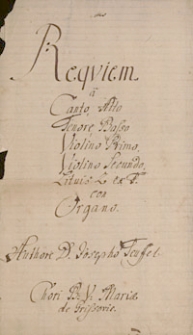 Requiem
a
Canto, Alto
Tenore, Basso
Violino Primo,
Violino Secundo,
Lituis 2 ex
con
Organo.
Authore D. Josepho Teufel.
Chori B. V. Mariæ
de